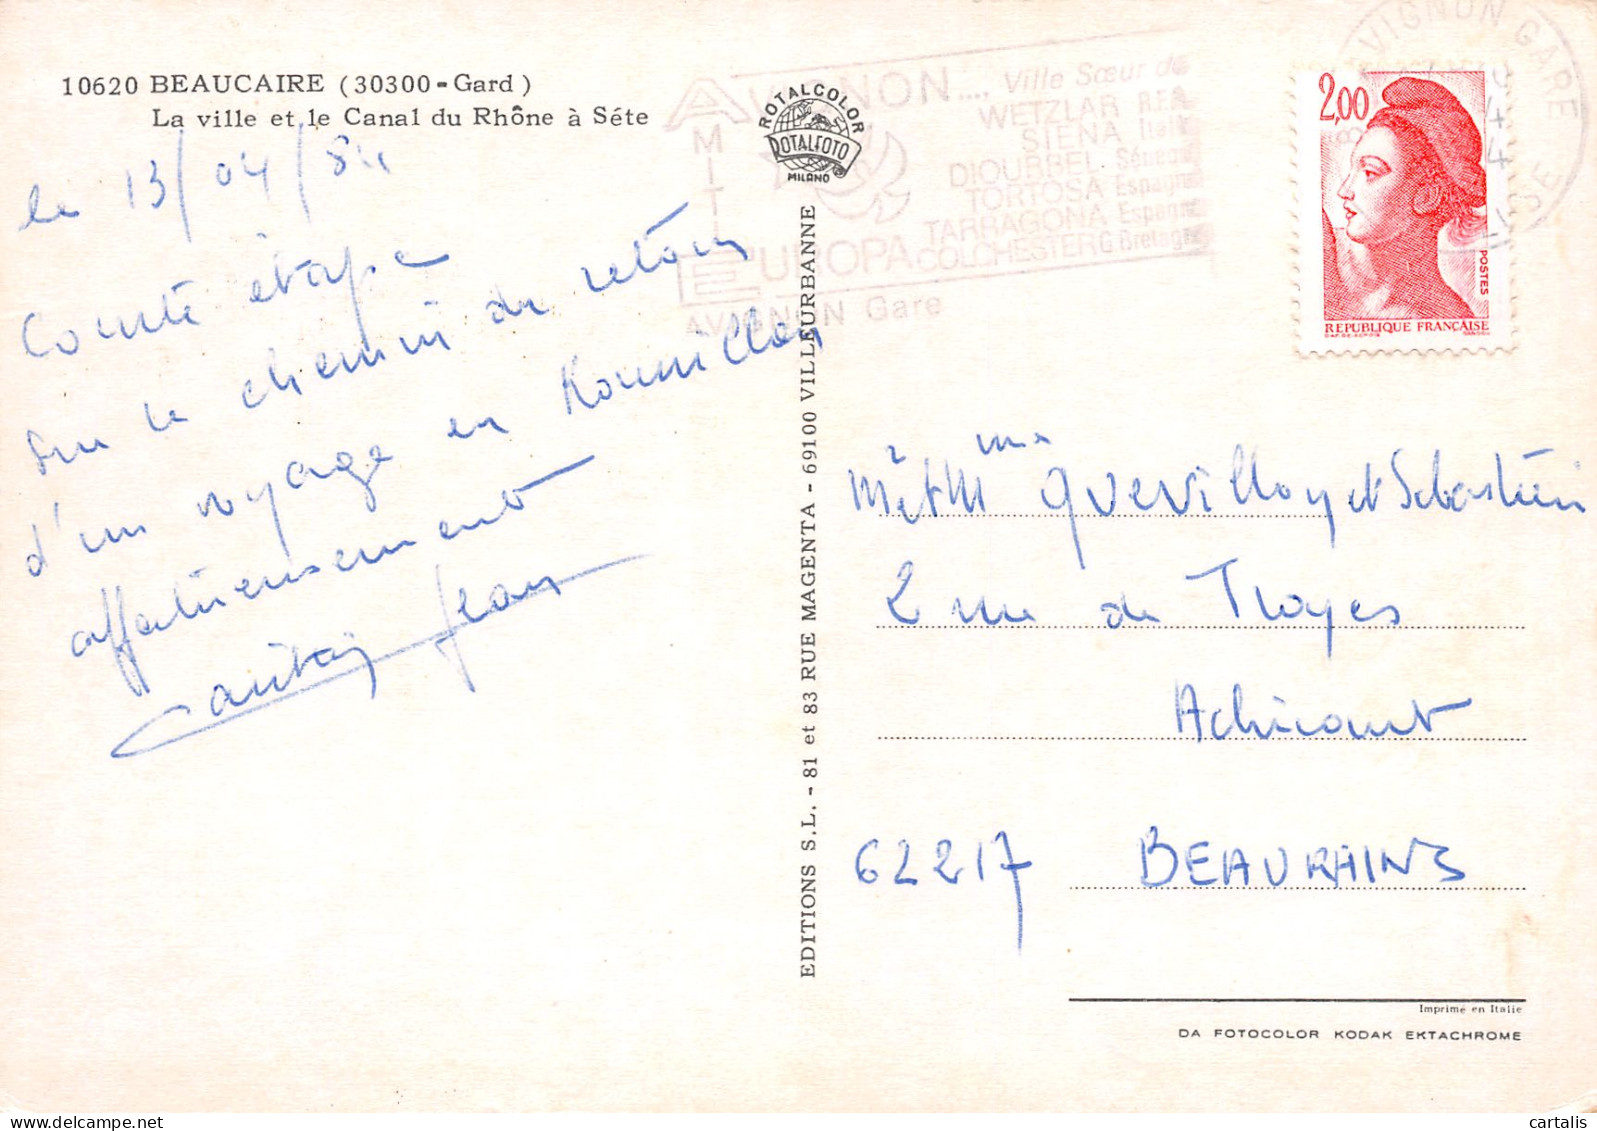 10620 BEAUCAIRE (30300-Gard)
La ville et le Canal du Rhône à Séte
le 13/04/84
Courte étape
sur le chemin du retour
d'un voyage en Roussillon
affectueusement
Jean
ROTALCOLOR
ROTALFOTO
MILANO
EDITIONS S.L. - 81 et 83 RUE MAGENTA - 69100 VILLEURBANNE
AVIGNON..., Ville Sœur de
WETZLAR R.F.A.
SIENA Italie
DIOURBEL Sénégal
TORTOSA Espagne
TARRAGONA Espagne
COLCHESTER G Bretagne
AMITIE
EUROPA
AVIGNON Gare
AVIGNON GARE
VAUCLUSE
2,00
POSTES
REPUBLIQUE FRANÇAISE
Mr et Mme Quevilloy et Sébastien
2 rue de Troyes
Achicourt
62217 BEAURAINS
Imprimé en Italie
DA FOTOCOLOR KODAK EKTACHROME
cartalis